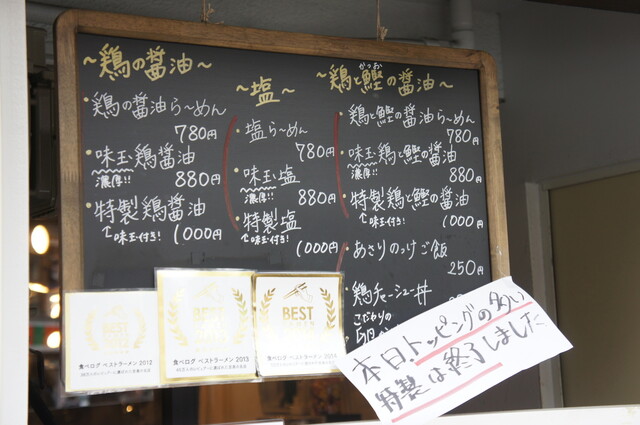 ~鶏の醤油~
・鶏の醤油らーめん
780円
・味玉鶏醤油
濃厚!!
880円
・特製鶏醤油
↑味玉付き!
1000円
~塩~
・塩らーめん
780円
・味玉塩
濃厚!!
880円
・特製塩
↑味玉付き!
1000円
かつお
~鶏と鰹の醤油~
・鶏と鰹の醤油らーめん
780円
・味玉鶏と鰹の醤油
濃厚!!
880円
・特製鶏と鰹の醤油
↑味玉付き!
1000円
・あさりのっけご飯
250円
・鶏チャーシュー丼
こだわりの
本日トッピングの多い
特製は終了しました
BEST
食べログ ベストラーメン 2012
BEST
食べログ ベストラーメン 2013
BEST
食べログ ベストラーメン